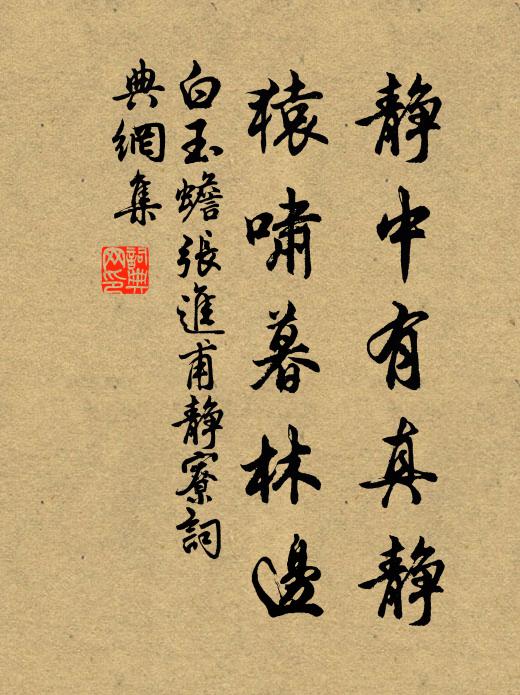 静中有真静
猿啸暮林邊
白玉蟾張進甫静寮詞
典網集
詞典網印